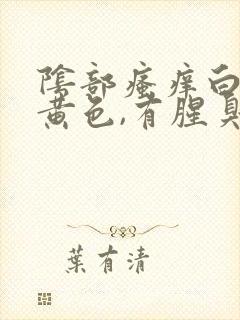 陰部瘙痒白
黄色,有腥臭
葉有清